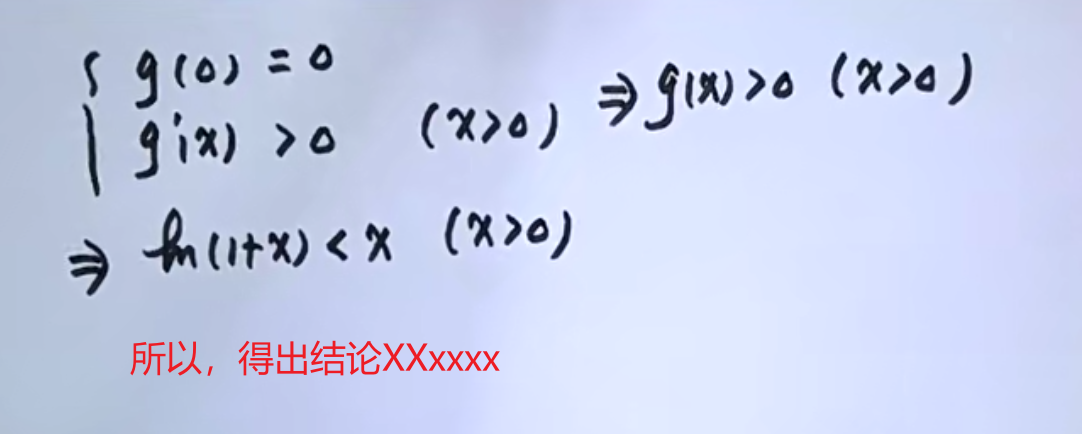 { g(0) = 0
g'(x) > 0 (x>0) ⇒ g(x)>0 (x>0)
⇒ ln(1+x) < x (x>0)
所以，得出结论XXxxxx